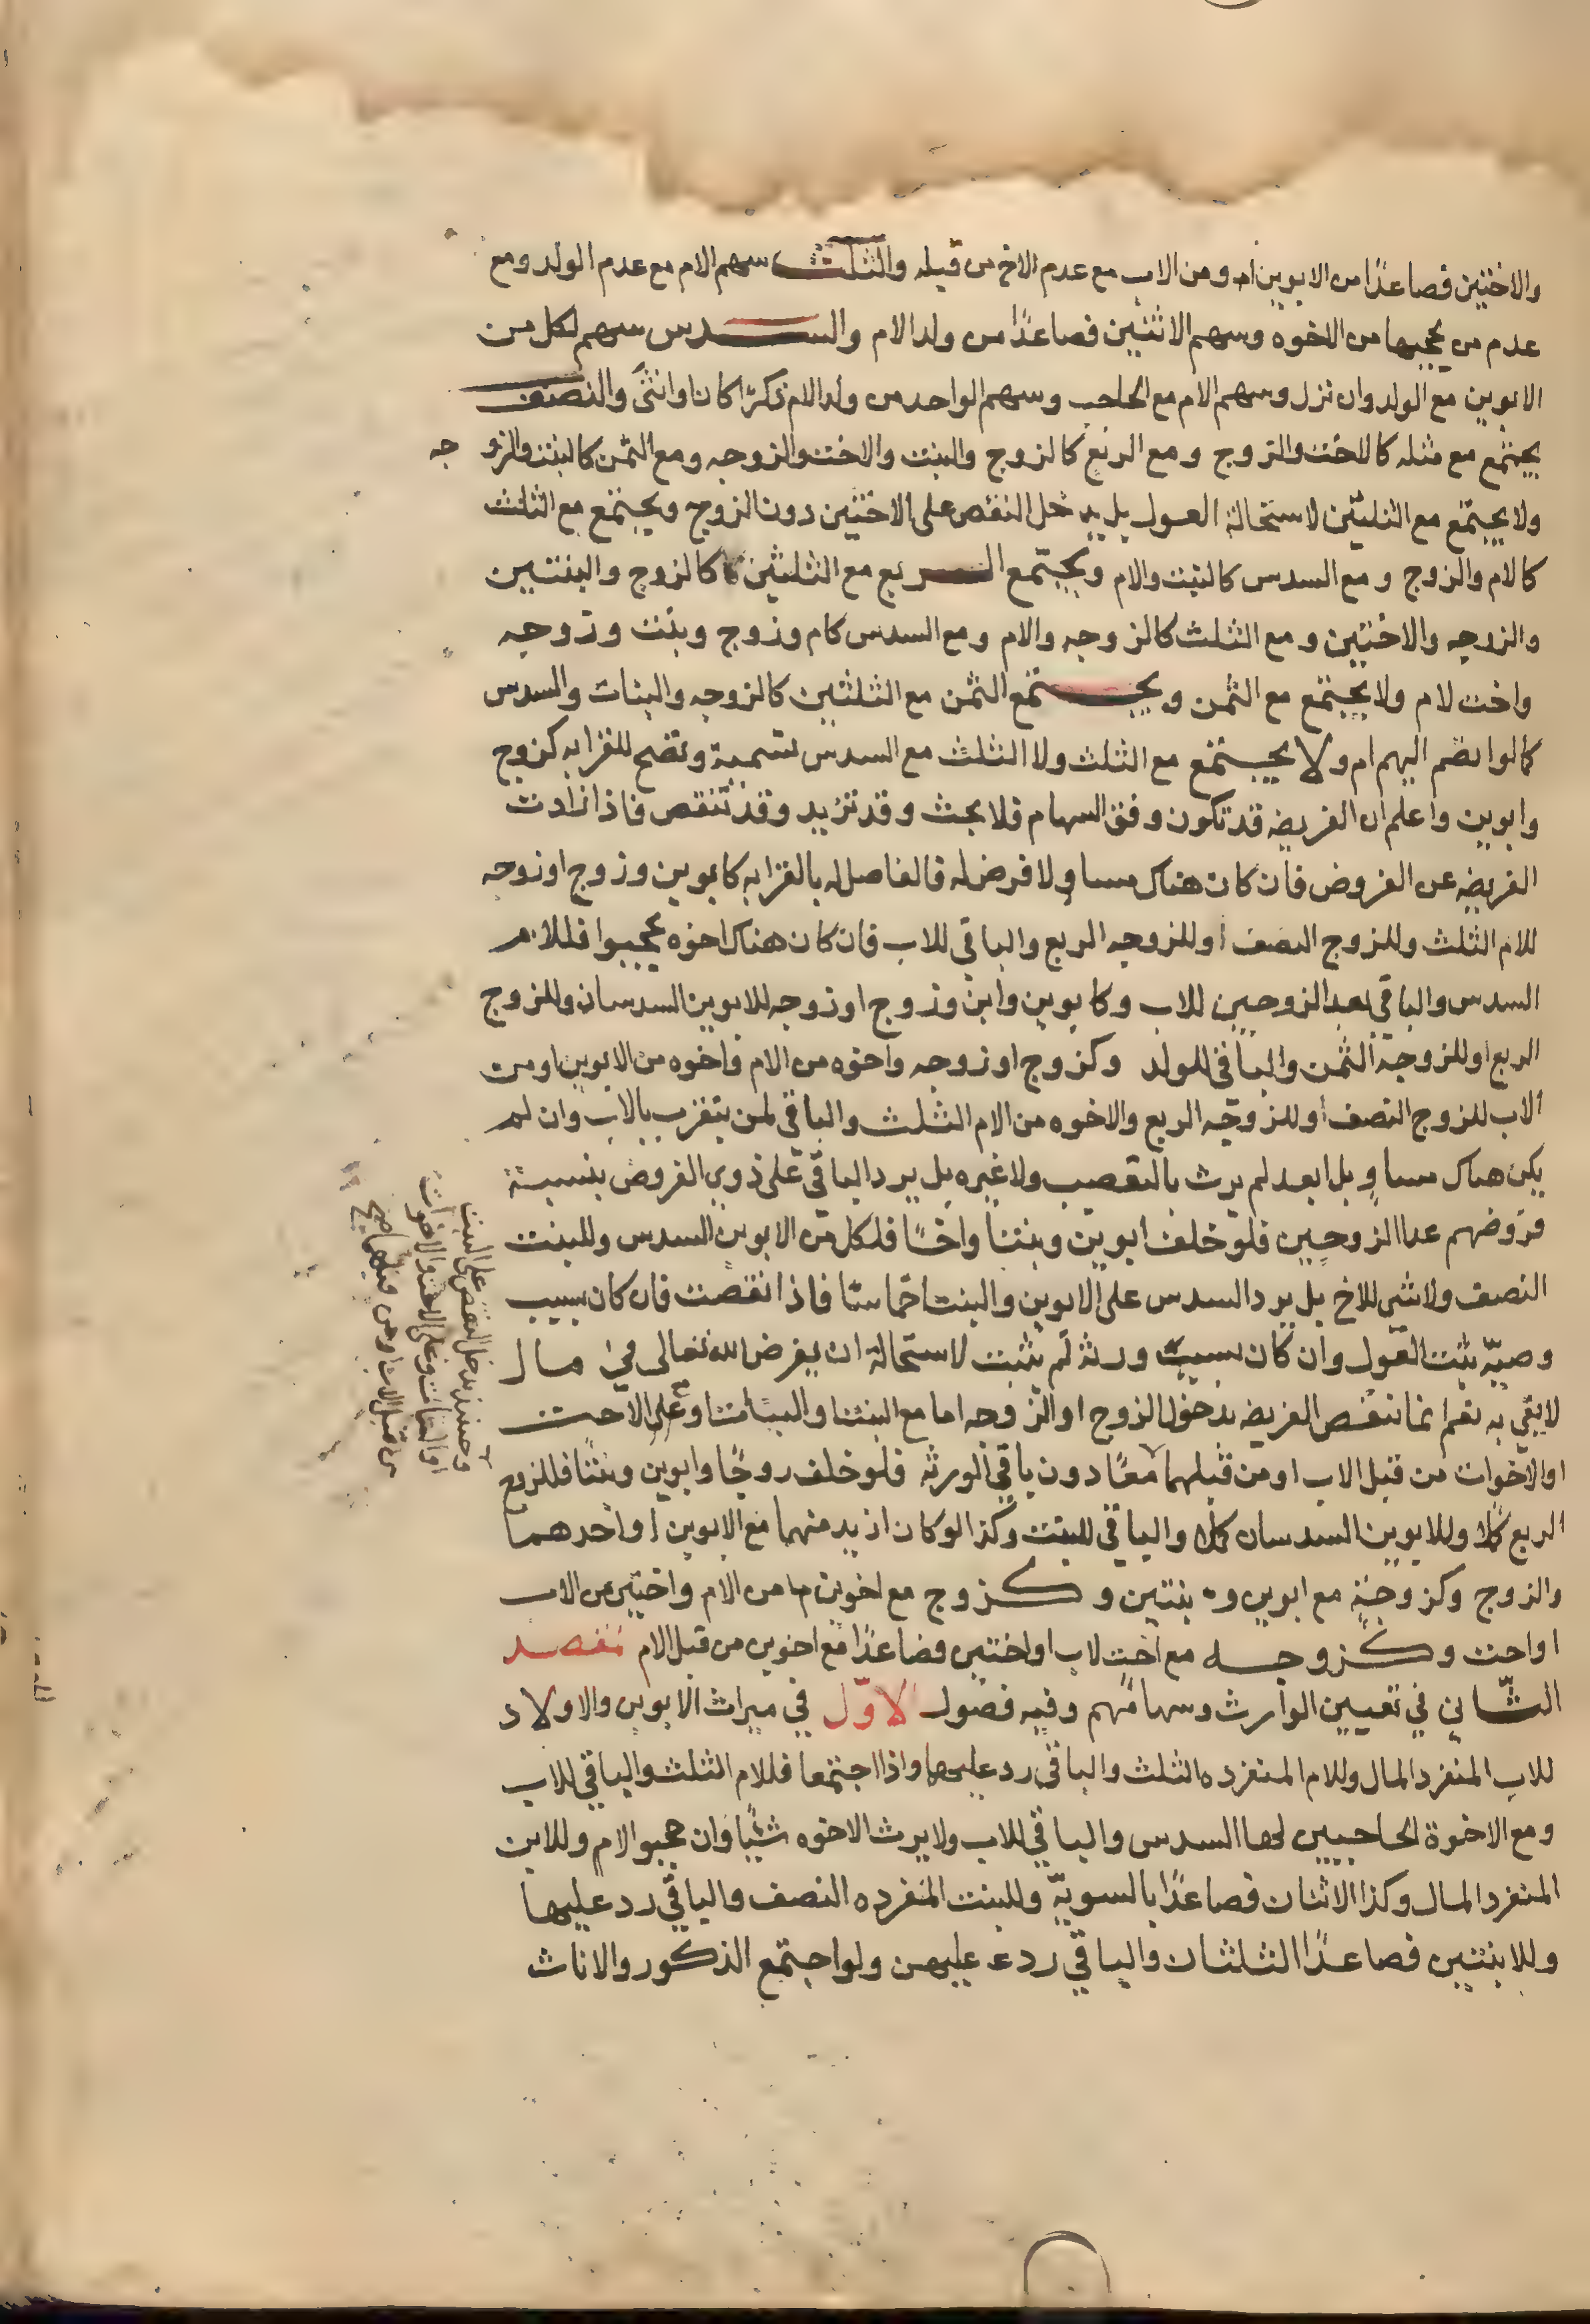 والاختين فصاعدًا من الابوين او من الاب مع عدم الاخ من قبله والثلث سهم الام مع عدم الولد ومع
عدم من يحجبها من الاخوه وسهم الاثنين فصاعدًا من ولد الام والسدس سهم لكل من
الابوين مع الولد وان نزل وسهم الام مع الحاجب وسهم الواحد من ولد الام ذكرًا كان او انثى والنصف
يجتمع مع مثله كالاخت والزوج ومع الربع كالزوج والبنت والاخت والزوجه ومع الثمن كالبنت والزوجه
ولا يجتمع مع الثلثين لاستحالة العول بل يدخل النقص على الاختين دون الزوج ويجتمع مع الثلث
كالام والزوج ومع السدس كالبنت والام ويجتمع الربع مع الثلثين كالزوج والبنتين
والزوجه والاختين ومع الثلث كالزوجه والام ومع السدس كام وزوج وبنت وزوجه
واخت لام ولا يجتمع مع الثمن ويجتمع الثمن مع الثلثين كالزوجه والبنات والسدس
كما لو انضم اليهم ام ولا يجتمع مع الثلث ولا الثلث مع السدس تسمية وتصح للقرابه كزوج
وابوين واعلم ان الفريضه قد تكون وفق السهام فلا بحث وقد تزيد وقد تنقص فاذا زادت
الفريضه عن الفروض فان كان هناك مساوٍ لا فرض له فالفاضل له بالقرابه كابوين وزوج او زوجه
للام الثلث وللزوج النصف او للزوجه الربع والباقي للاب فان كان هناك اخوه يحجبوا فللام
السدس والباقي بعد الزوجين للاب وكابوين وابن وزوج او زوجه للابوين السدسان وللزوج
الربع او للزوجة الثمن والباقي للولد وكزوج او زوجه واخوه من الام واخوه من الابوين او من
الاب للزوج النصف او للزوجه الربع والاخوه من الام الثلث والباقي لمن يتقرب بالاب وان لم
يكن هناك مساوٍ بل ابعد لم يرث بالتعصيب ولا غيره بل يرد الباقي على ذوي الفروض بنسبة
فروضهم عدا الزوجين فلو خلف ابوين وبنتا واخًا فلكل من الابوين السدس وللبنت
النصف ولا شي للاخ بل يرد السدس على الابوين والبنت اخماسًا فاذا نقصت فان كان بسبب
وصيّه ثبت العول وان كان بسبب ورثة لم يثبت لاستحالة ان يفرض الله تعالى في مال
لا يفي به نعم انما تنقص الفريضه بدخول الزوج او الزوجه اما مع البنت او البنات او على الاخت
او الاخوات من قبل الاب او من قبلهما معًا دون باقي الورثه فلو خلف زوجًا وابوين وبنتًا فللزوج
الربع كملا وللابوين السدسان كملا والباقي للبنت وكذا لو كان ازيد منهما مع الابوين او احدهما
والزوج وكزوجة مع ابوين و بنتين وكزوج مع اخوين من الام واختين من الاب
او اخت وكزوجه مع اخت لاب او اختين فصاعدًا مع اخوين من قبل الام مقصد
الثّاني في تعيين الوارث وسهامهم وفيه فصول الاوّل في ميراث الابوين والاولاد
للاب المنفرد المال وللام المنفرده الثلث والباقي رد عليها واذا اجتمعا فللام الثلث والباقي للاب
ومع الاخوة الحاجبين لها السدس والباقي للاب ولا يرث الاخوه شيًا وان حجبوا الام وللابن
المنفرد المال وكذا الاثنان فصاعدًا بالسويّة وللبنت المنفرده النصف والباقي رد عليها
وللابنتين فصاعدًا الثلثان والباقي رد عليهن ولو اجتمع الذكور والاناث
وحينئذ يدخل النقص على البنت
او البنات وعلى الاخت والاخوات
من قبل الاب او من قبلهما صح